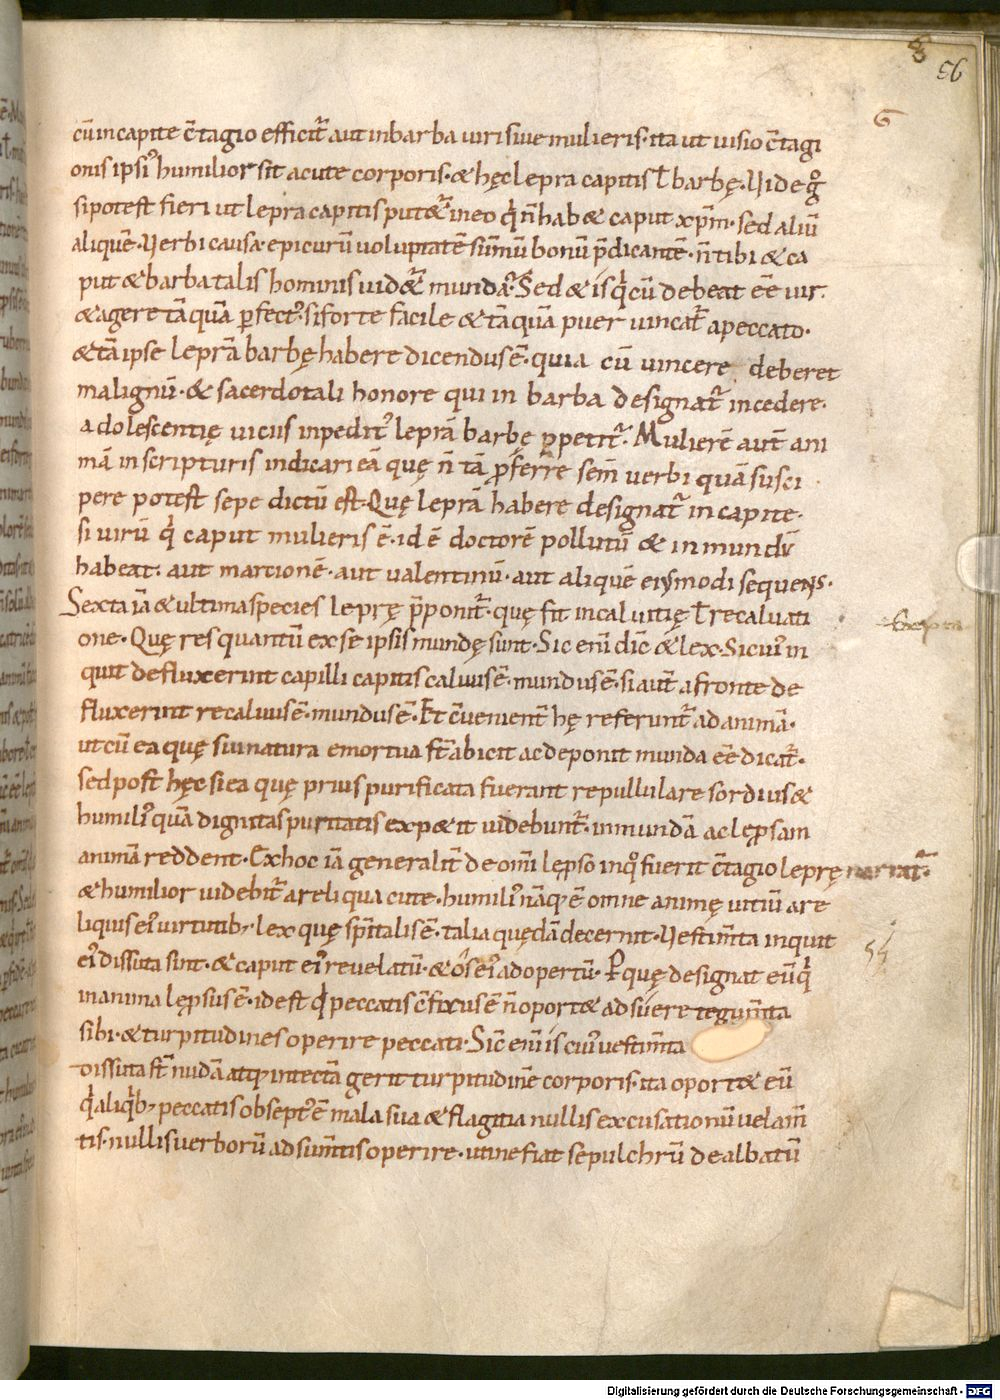 8
56
G
cū in capite c̄tagio efficit̄ aut in barba uiri siue mulieris· ita ut uisio c̄tagi
onis ipsiꝰ humilior sit a cute corporis· & hęc lepra capitis ł barbę· Vide g̊
si potest fieri ut lepra capitis putet̄ in eo q̇ n̄ hab& caput xp̄m· sed aliū
aliquē· Verbi causa· epicurū uoluptatē sūmū bonū p̄dicantē· n̄ tibi & ca
put & barba talis hominis uidet̄ munda? Sed & is q̇ cū debeat ēē uir·
& agere tāquā perfectꝰ· si forte facile & tāquā puer uincat̄ a peccato·
& tā ipse leprā barbę habere dicendus ē· quia cū uincere deberet
malignū· & sacerdotali honore qui in barba designat̄ incedere·
adolescentię uiciis inpeditꝰ leprā barbę ꝑpetit̄· Mulierē aut̄ ani
mā in scripturis indicari eā quę n̄ tā ꝓferre sem̄ uerbi quā susci
pere potest sepe dictū est· Quę leprā habere designat̄ in capite·
si uirū q̇ caput mulieris ē· id ē doctorē pollutū & inmundū
habeat· aut martionē· aut ualentinū· aut aliquē eiusmodi sequens·
Sexta iā & ultima species leprę p̄ponit̄· quę fit in caluitię ł recaluati
one· Quę res quantū ex se ipsis mundę sunt· Sic eni dic̄ & lex· Si cuiꝰ in
quit defluxerint capilli capitis caluus ē· mundus ē· si aut̄ a fronte de
fluxerint recaluus ē· mundus ē· Et c̄uenient̄ hę referunt̄ ad animā·
ut cū ea quę sui natura emortua st̄ abicit ac deponit munda ēē dicat̄·
sed post hęc si ea quę prius purificata fuerant repullulare sordius &
humiliꝰ quā dignitas puritatis exp&it uidebunt̄· inmundā ac lęprosam
animā reddent· Ex hoc iā generalit̄ de om̄i lęp̄so inq̊ fuerit c̄tagio leprę narrat̄·
& humilior uidebit̄ a reliqua cute· humiliꝰ nāq; ē omne animę uitiū a re
liquis eiꝰ uirtutib;· lex quę sp̄italis ē· talia quędā decernit· Vestim̄ta inquit
eiꝰ dissuta sint· & caput eiꝰ reuelatū· & os eiꝰ adopertū· P quę designat eū q̇
in anima lęp̄sus ē· id est q̇ peccatis c̄fixus ē n̄ oport& adsuere tegum̄ta
sibi· & turpitudines operire peccati· Sic eni is cuiꝰ uestim̄ta
dissuta st̄ nudā atq; intectā gerit turpitudinē corporis· ita oport& eū
q̇ aliq̇b; peccatis obseptꝰ ē mala sua & flagitia nullis excusationū uelam̄
tis· nullis uerborū adsum̄tis operire· uti ne fiat sepulchrū dealbatū
Digitalisierung gefördert durch die Deutsche Forschungsgemeinschaft - DFG